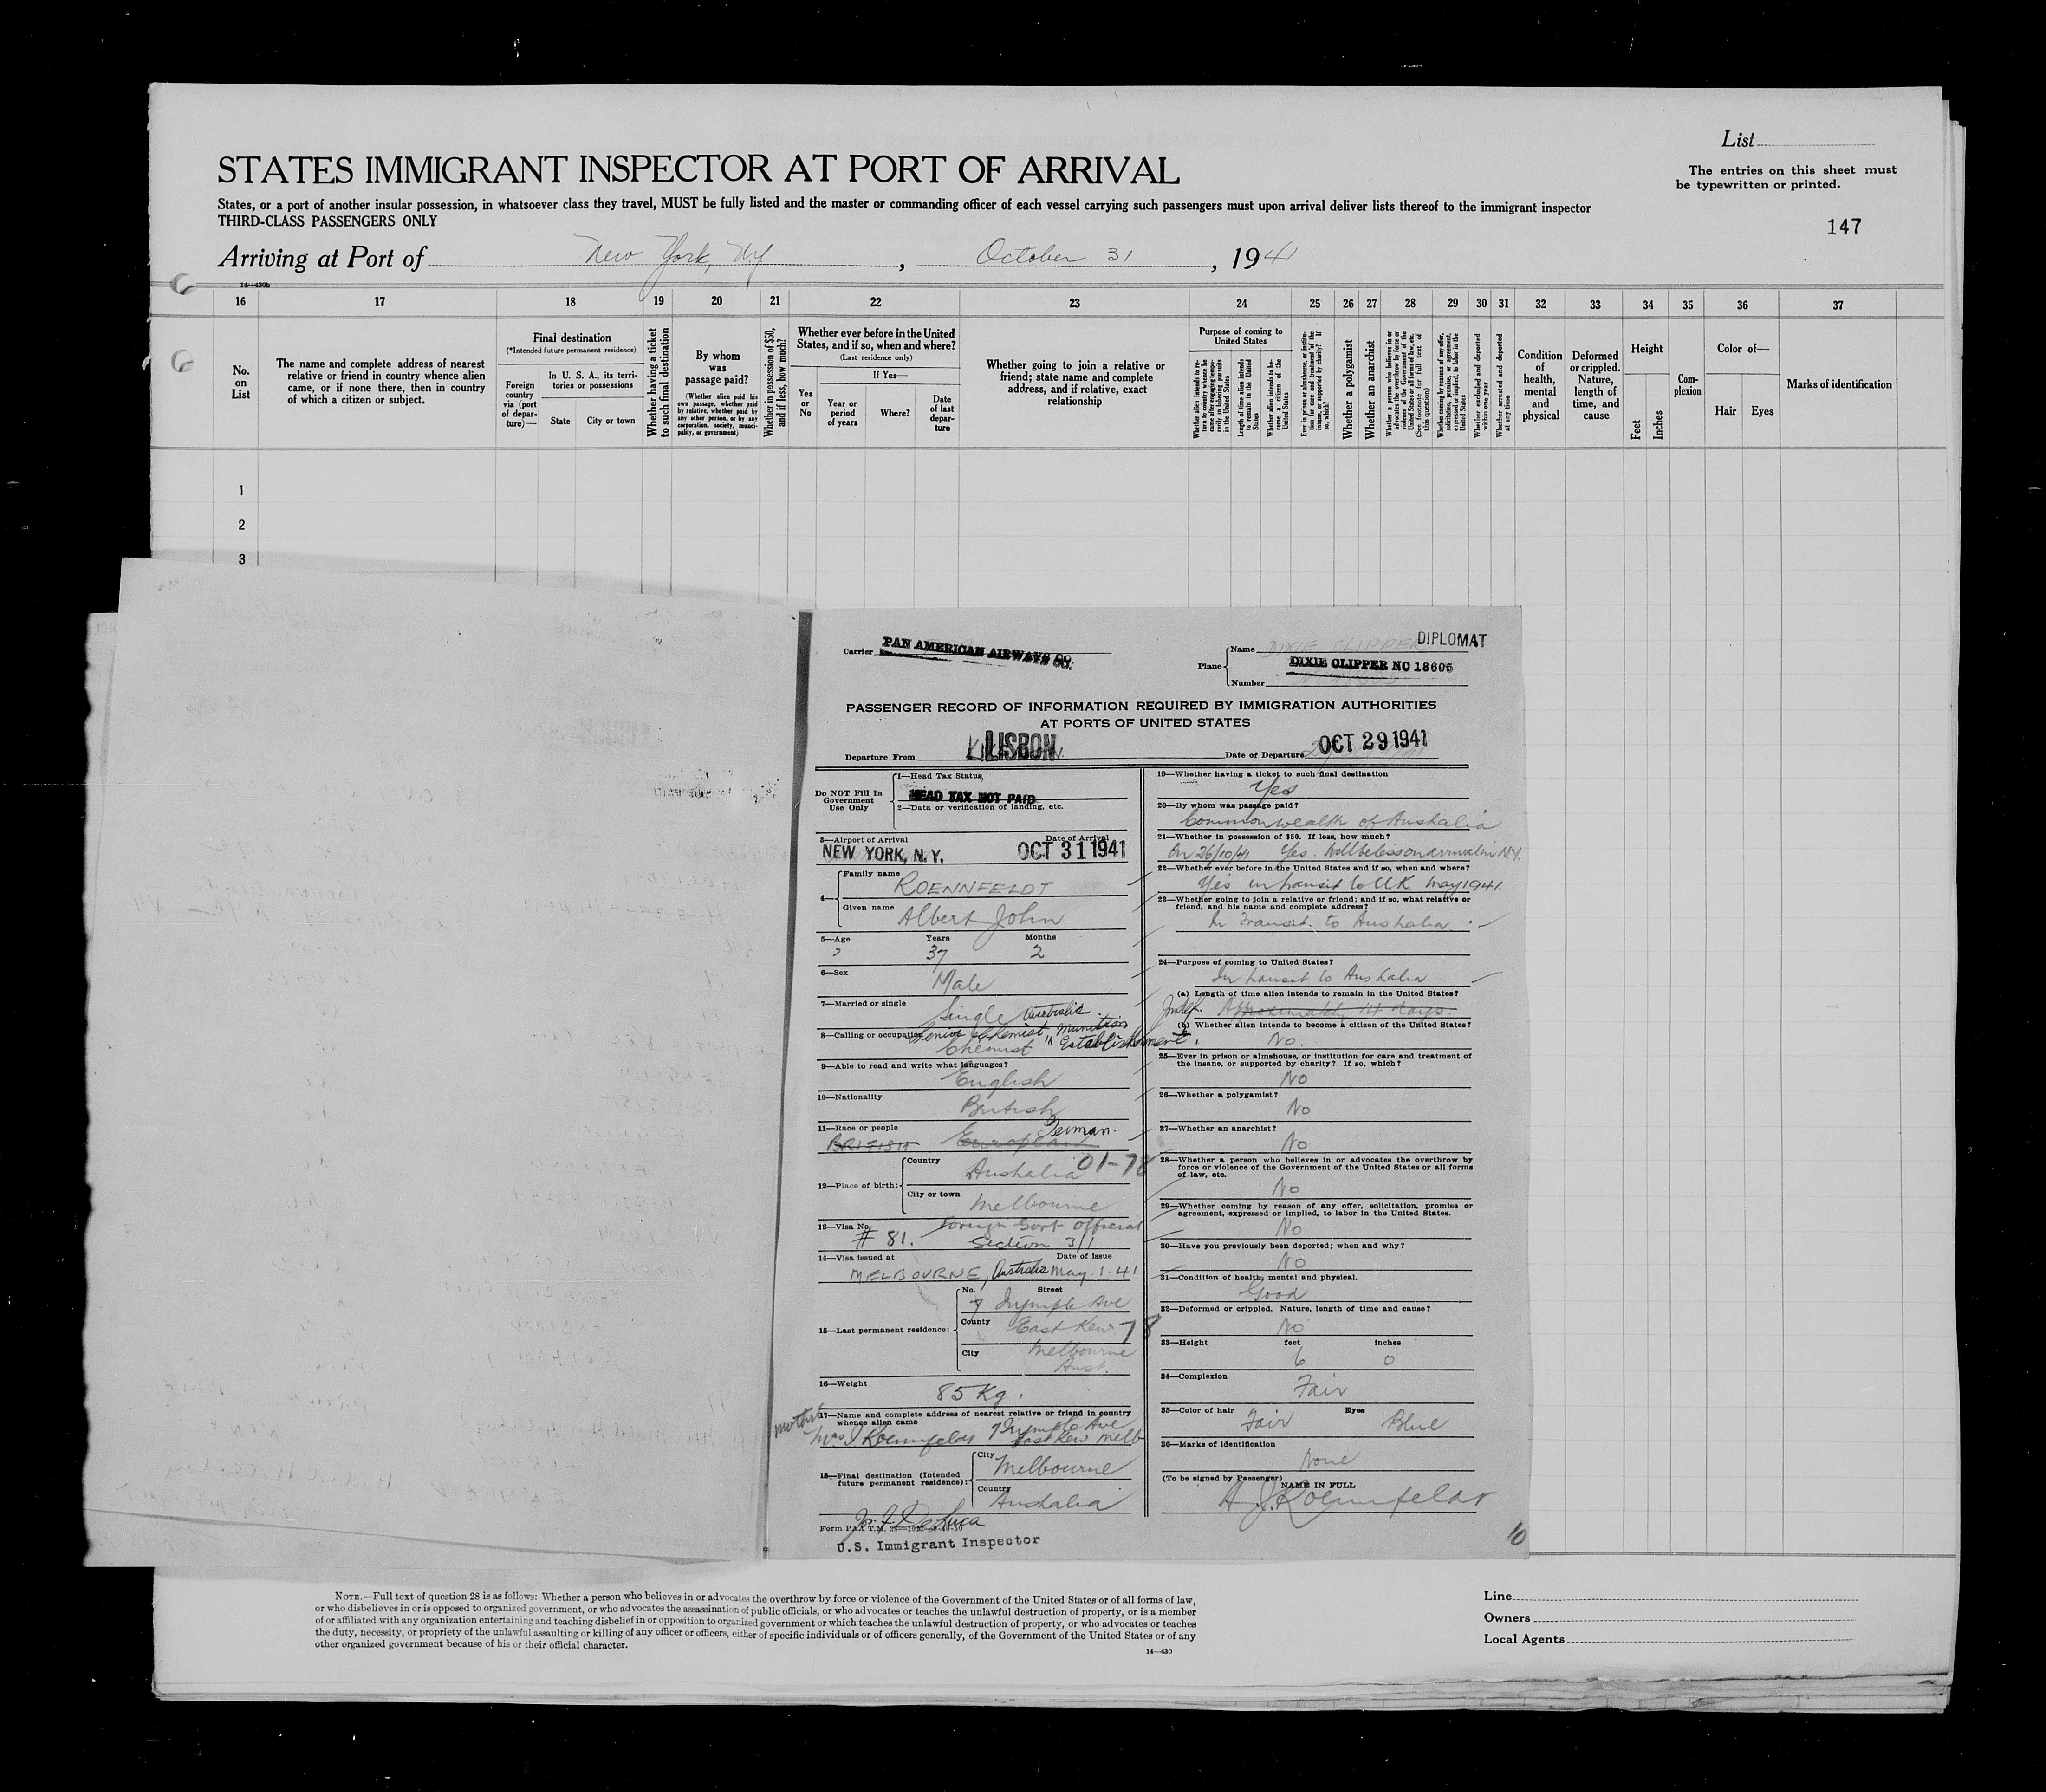 List
STATES IMMIGRANT INSPECTOR AT PORT OF ARRIVAL
The entries on this sheet must be typewritten or printed.
States, or a port of another insular possession, in whatsoever class they travel, MUST be fully listed and the master or commanding officer of each vessel carrying such passengers must upon arrival deliver lists thereof to the immigrant inspector
THIRD-CLASS PASSENGERS ONLY
147
Arriving at Port of New York, NY, October 31, 1941
16 17 18 19 20 21 22 23 24 25 26 27 28 29 30 31 32 33 34 35 36 37
No. on List
The name and complete address of nearest relative or friend in country whence alien came, or if none there, then in country of which a citizen or subject.
Final destination
(*Intended future permanent residence)
Foreign country via (port of departure)—
In U. S. A., its territories or possessions
State
City or town
Whether having a ticket to such final destination
By whom was passage paid?
(Whether alien paid his own passage, whether paid by relative, whether paid by any other person, or by any corporation, society, municipality, or government)
Whether in possession of $50, and if less, how much?
Whether ever before in the United States, and if so, when and where?
(Last residence only)
Yes or No
If Yes—
Year or period of years
Where?
Date of last departure
Whether going to join a relative or friend; state name and complete address, and if relative, exact relationship
Purpose of coming to United States
Whether alien intends to return to country whence he came after engaging temporarily in laboring pursuits in the United States
Length of time alien intends to remain in the United States
Whether alien intends to become a citizen of the United States
Ever in prison or almshouse, or institution for care and treatment of the insane, or supported by charity? If so, which?
Whether a polygamist
Whether an anarchist
Whether a person who believes in or advocates the overthrow by force or violence of the Government of the United States or all forms of law, etc. (See footnote for full text of this question)
Whether coming by reason of any offer, solicitation, promise, or agreement, expressed or implied, to labor in the United States
Whether excluded and deported within one year
Whether arrested and deported at any time
Condition of health, mental and physical
Deformed or crippled. Nature, length of time, and cause
Height
Feet
Inches
Complexion
Color of—
Hair
Eyes
Marks of identification
1
2
3
DIPLOMAT
Carrier PAN AMERICAN AIRWAYS CO.
Plane Name DIXIE CLIPPER NC 18605
Number
PASSENGER RECORD OF INFORMATION REQUIRED BY IMMIGRATION AUTHORITIES
AT PORTS OF UNITED STATES
Departure From LISBON
Date of Departure OCT 29 1941
Do NOT Fill In Government Use Only
1—Head Tax Status
HEAD TAX NOT PAID
2—Data or verification of landing, etc.
3—Airport of Arrival Date of Arrival
NEW YORK, N.Y. OCT 31 1941
4— Family name ROENNFELDT
Given name Albert John
5—Age Years Months
37 2
6—Sex Male
7—Married or single Single
8—Calling or occupation Senior Chemist, Munition
Chemist Establishment
9—Able to read and write what languages?
English
10—Nationality British
11—Race or people German.
BRITISH European
12—Place of birth: Country Australia 01-78
City or town Melbourne
13—Visa No. Foreign Govt Official
# 81. Section 3/1
14—Visa issued at Date of issue
MELBOURNE, Australia May 1 41
15—Last permanent residence: No. Street
7 Irymple Ave
County East Kew 78
City Melbourne
Aust.
16—Weight 85 Kg.
17—Name and complete address of nearest relative or friend in country whence alien came
mother
Mrs I Roennfeldt 7 Irymple Ave
East Kew Melb
18—Final destination (Intended future permanent residence): City Melbourne
Country Australia
Jos. F. De Luca
Form PAA T.M.
U.S. Immigrant Inspector
19—Whether having a ticket to such final destination
Yes
20—By whom was passage paid?
Commonwealth of Australia
21—Whether in possession of $50. If less, how much?
On 26/10/41 Yes. Will be less on arrival in N.Y.
22—Whether ever before in the United States and if so, when and where?
Yes in transit to U.K. May 1941.
23—Whether going to join a relative or friend; and if so, what relative or friend, and his name and complete address?
In Transit to Australia
24—Purpose of coming to United States?
In transit to Australia
(a) Length of time alien intends to remain in the United States?
Indef. Approximately 14 days.
(b) Whether alien intends to become a citizen of the United States?
No.
25—Ever in prison or almshouse, or institution for care and treatment of the insane, or supported by charity? If so, which?
No
26—Whether a polygamist?
No
27—Whether an anarchist?
No
28—Whether a person who believes in or advocates the overthrow by force or violence of the Government of the United States or all forms of law, etc.
No
29—Whether coming by reason of any offer, solicitation, promise or agreement, expressed or implied, to labor in the United States.
No
30—Have you previously been deported; when and why?
No
31—Condition of health; mental and physical.
Good
32—Deformed or crippled. Nature, length of time and cause?
No
33—Height feet inches
6 0
34—Complexion
Fair
35—Color of hair Fair Eyes Blue
36—Marks of identification
None
(To be signed by Passenger) NAME IN FULL
A. J. Roennfeldt
10
NOTE.—Full text of question 28 is as follows: Whether a person who believes in or advocates the overthrow by force or violence of the Government of the United States or of all forms of law,
or who disbelieves in or is opposed to organized government, or who advocates the assassination of public officials, or who advocates or teaches the unlawful destruction of property, or is a member
of or affiliated with any organization entertaining and teaching disbelief in or opposition to organized government or which teaches the unlawful destruction of property, or who advocates or teaches
the duty, necessity, or propriety of the unlawful assaulting or killing of any officer or officers, either of specific individuals or of officers generally, of the Government of the United States or of any
other organized government because of his or their official character.
14—430
Line
Owners
Local Agents